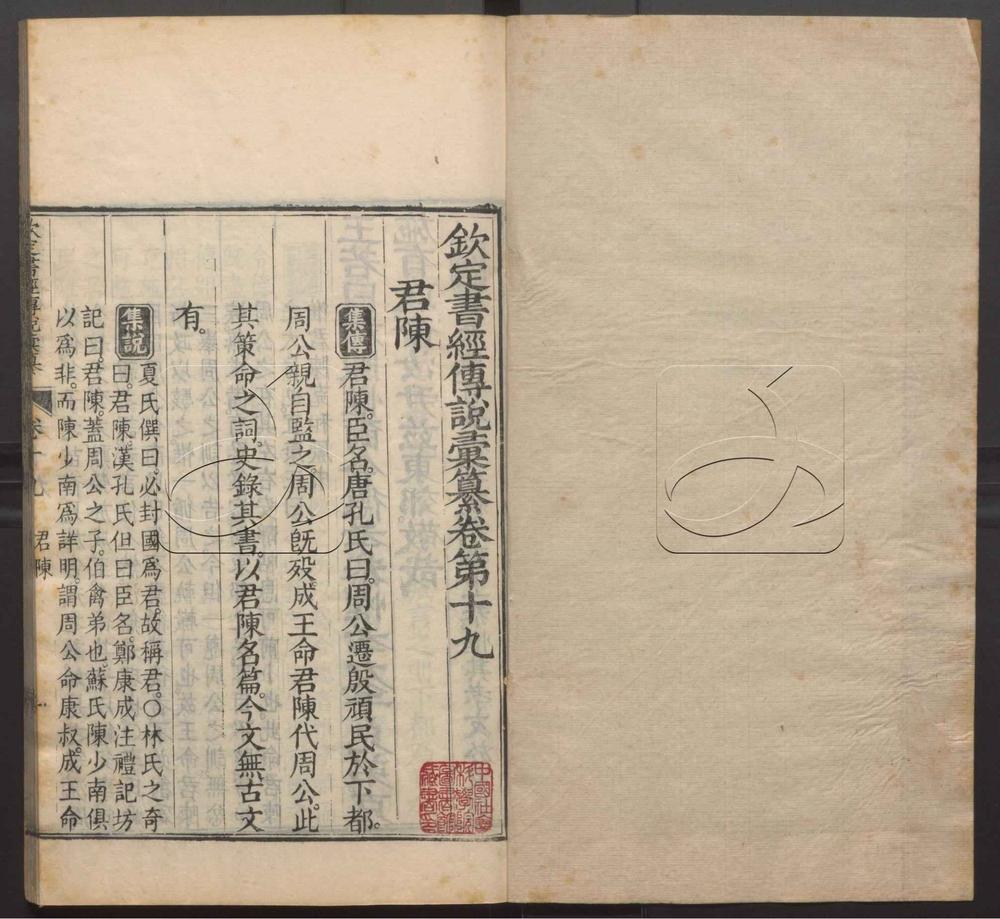 欽定書經傳說彙纂卷第十九
君陳
集傳 君陳。臣名。唐孔氏曰。周公遷殷頑民於下都。
周公親自監之。周公旣歿。成王命君陳代周公。此
其策命之詞。史錄其書。以君陳名篇。今文無。古文
有。
集說 夏氏僎曰。必封國爲君。故稱君。○林氏之奇
曰。君陳。漢孔氏但曰臣名。鄭康成注禮記坊
記曰。君陳。蓋周公之子。伯禽弟也。蘇氏陳少南俱
以爲非。而陳少南爲詳明。謂周公命康叔。成王命
欽定書經傳說彙纂 卷十九 君陳 一
中國社會
科學院
圖書館
藏書印